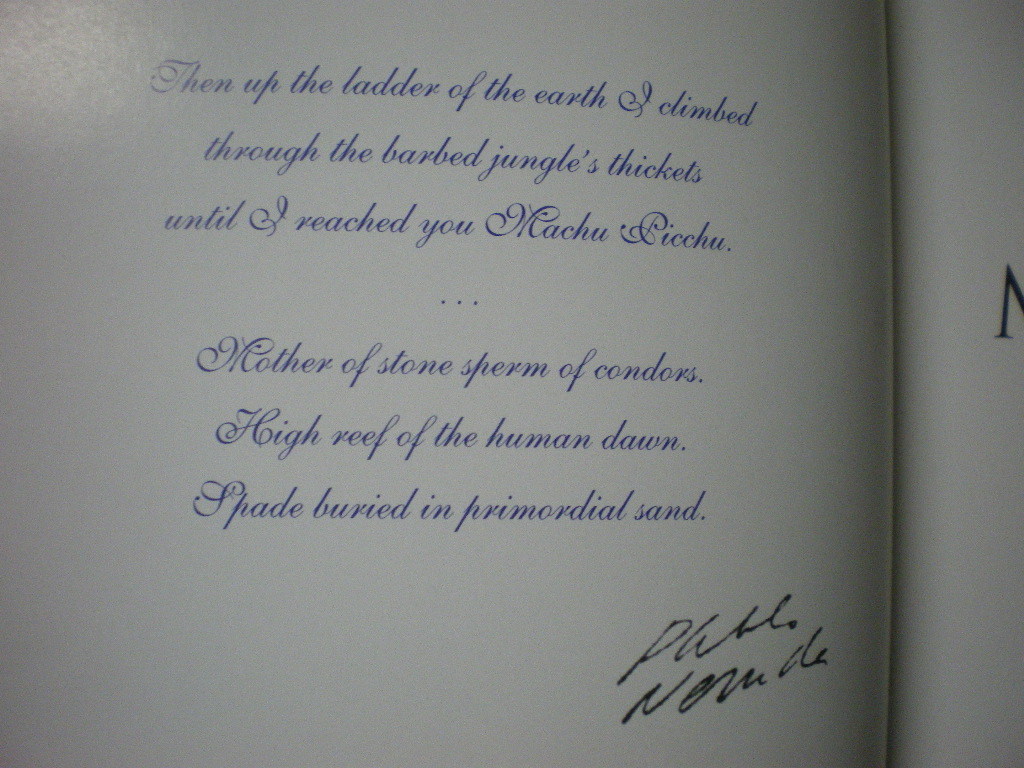 Then up the ladder of the earth I climbed
through the barbed jungle's thickets
until I reached you Machu Picchu.
...
Mother of stone sperm of condors.
High reef of the human dawn.
Spade buried in primordial sand.
Pablo
Neruda